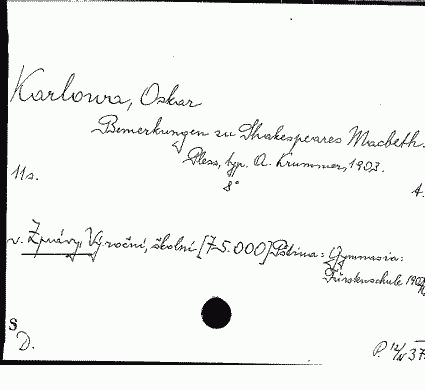 Karlowa, Oskar
Bemerkungen zu Shakespeares Macbeth.
Pless, typ. A. Krummer, 1903.
11s. 8° 4.
v. Zprávy, Výroční, školní [75.000] Pština: Gymnasia:
Fürstenschule 1902/
S
D. P. 12/IV 37.